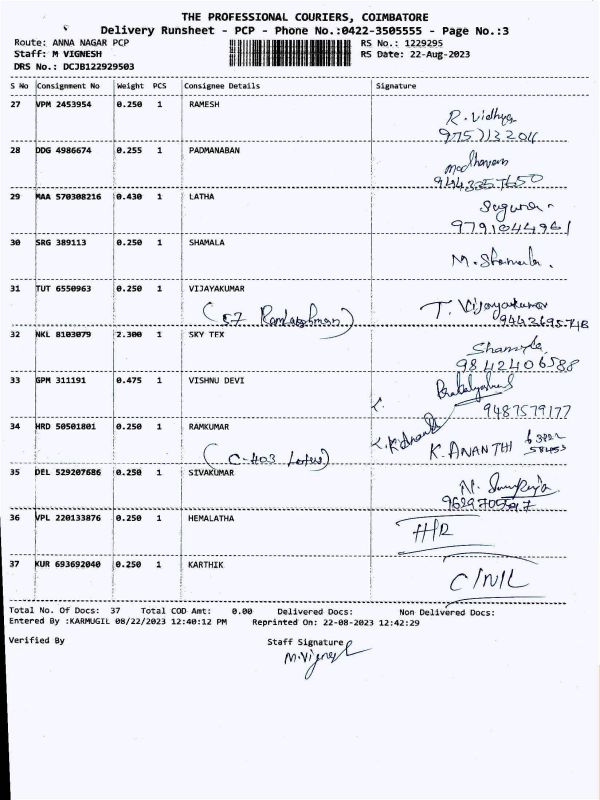 THE PROFESSIONAL COURIERS, COIMBATORE
Delivery Runsheet - PCP - Phone No.:0422-3505555 - Page No.:3
Route: ANNA NAGAR PCP RS No.: 1229295
Staff: M VIGNESH RS Date: 22-Aug-2023
DRS No.: DCJB122929503
S No Consignment No Weight PCS Consignee Details Signature
27 VPM 2453954 0.250 1 RAMESH
R. Vidhya
28 DDG 4986674 0.255 1 PADMANABAN
Madhavan
29 MAA 570308216 0.430 1 LATHA
9791044961
30 SRG 389113 0.250 1 SHAMALA
M. Shamala.
31 TUT 6550963 0.250 1 VIJAYAKUMAR
(57 ) T. Vijayakumar
32 NKL 8103079 2.300 1 SKY TEX
9842406588
33 GPM 311191 0.475 1 VISHNU DEVI
9487579177
34 HRD 50501801 0.250 1 RAMKUMAR
K. ANANTHI
(C-403 Lotus)
35 DEL 529207686 0.250 1 SIVAKUMAR
36 VPL 220133876 0.250 1 HEMALATHA
37 KUR 693692040 0.250 1 KARTHIK
Total No. Of Docs: 37 Total COD Amt: 0.00 Delivered Docs: Non Delivered Docs:
Entered By :KARMUGIL 08/22/2023 12:40:12 PM Reprinted On: 22-08-2023 12:42:29
Verified By Staff Signature
M.Vignesh